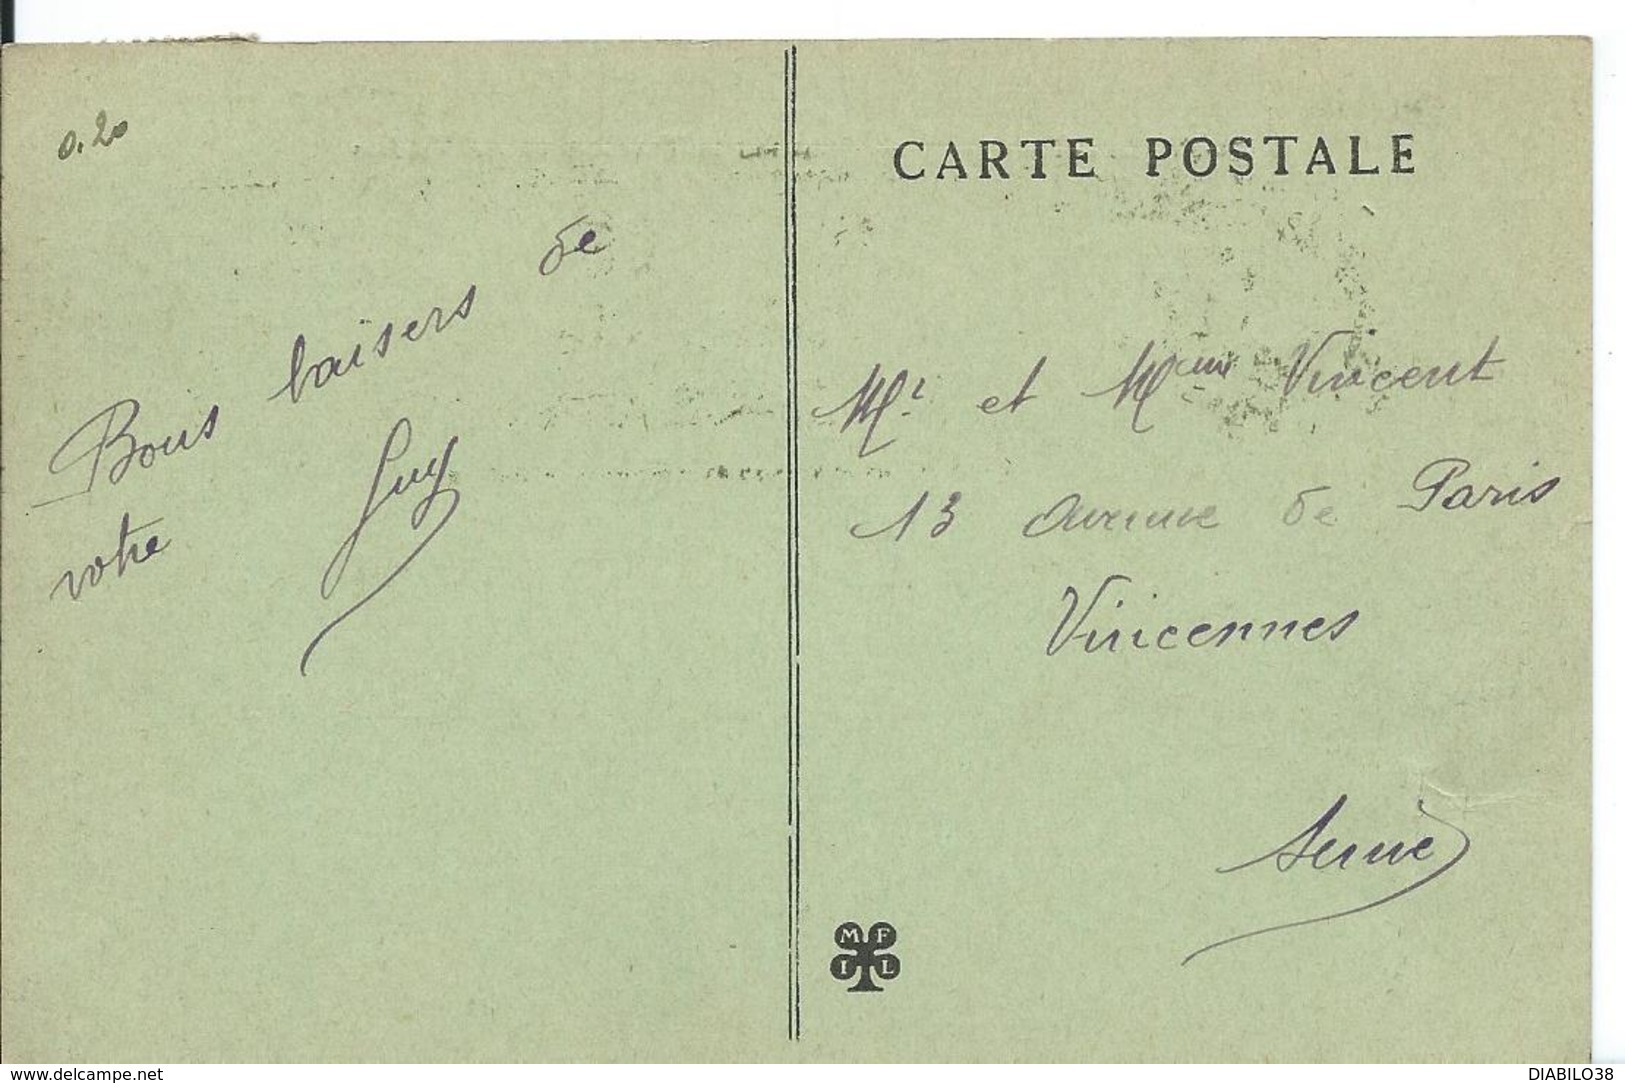 0.20
Bons baisers de
votre Guy
CARTE POSTALE
Mr. et Mme Vincent
13 avenue de Paris
Vincennes
Seine
M F
I L
www.delcampe.net
DIABILO38